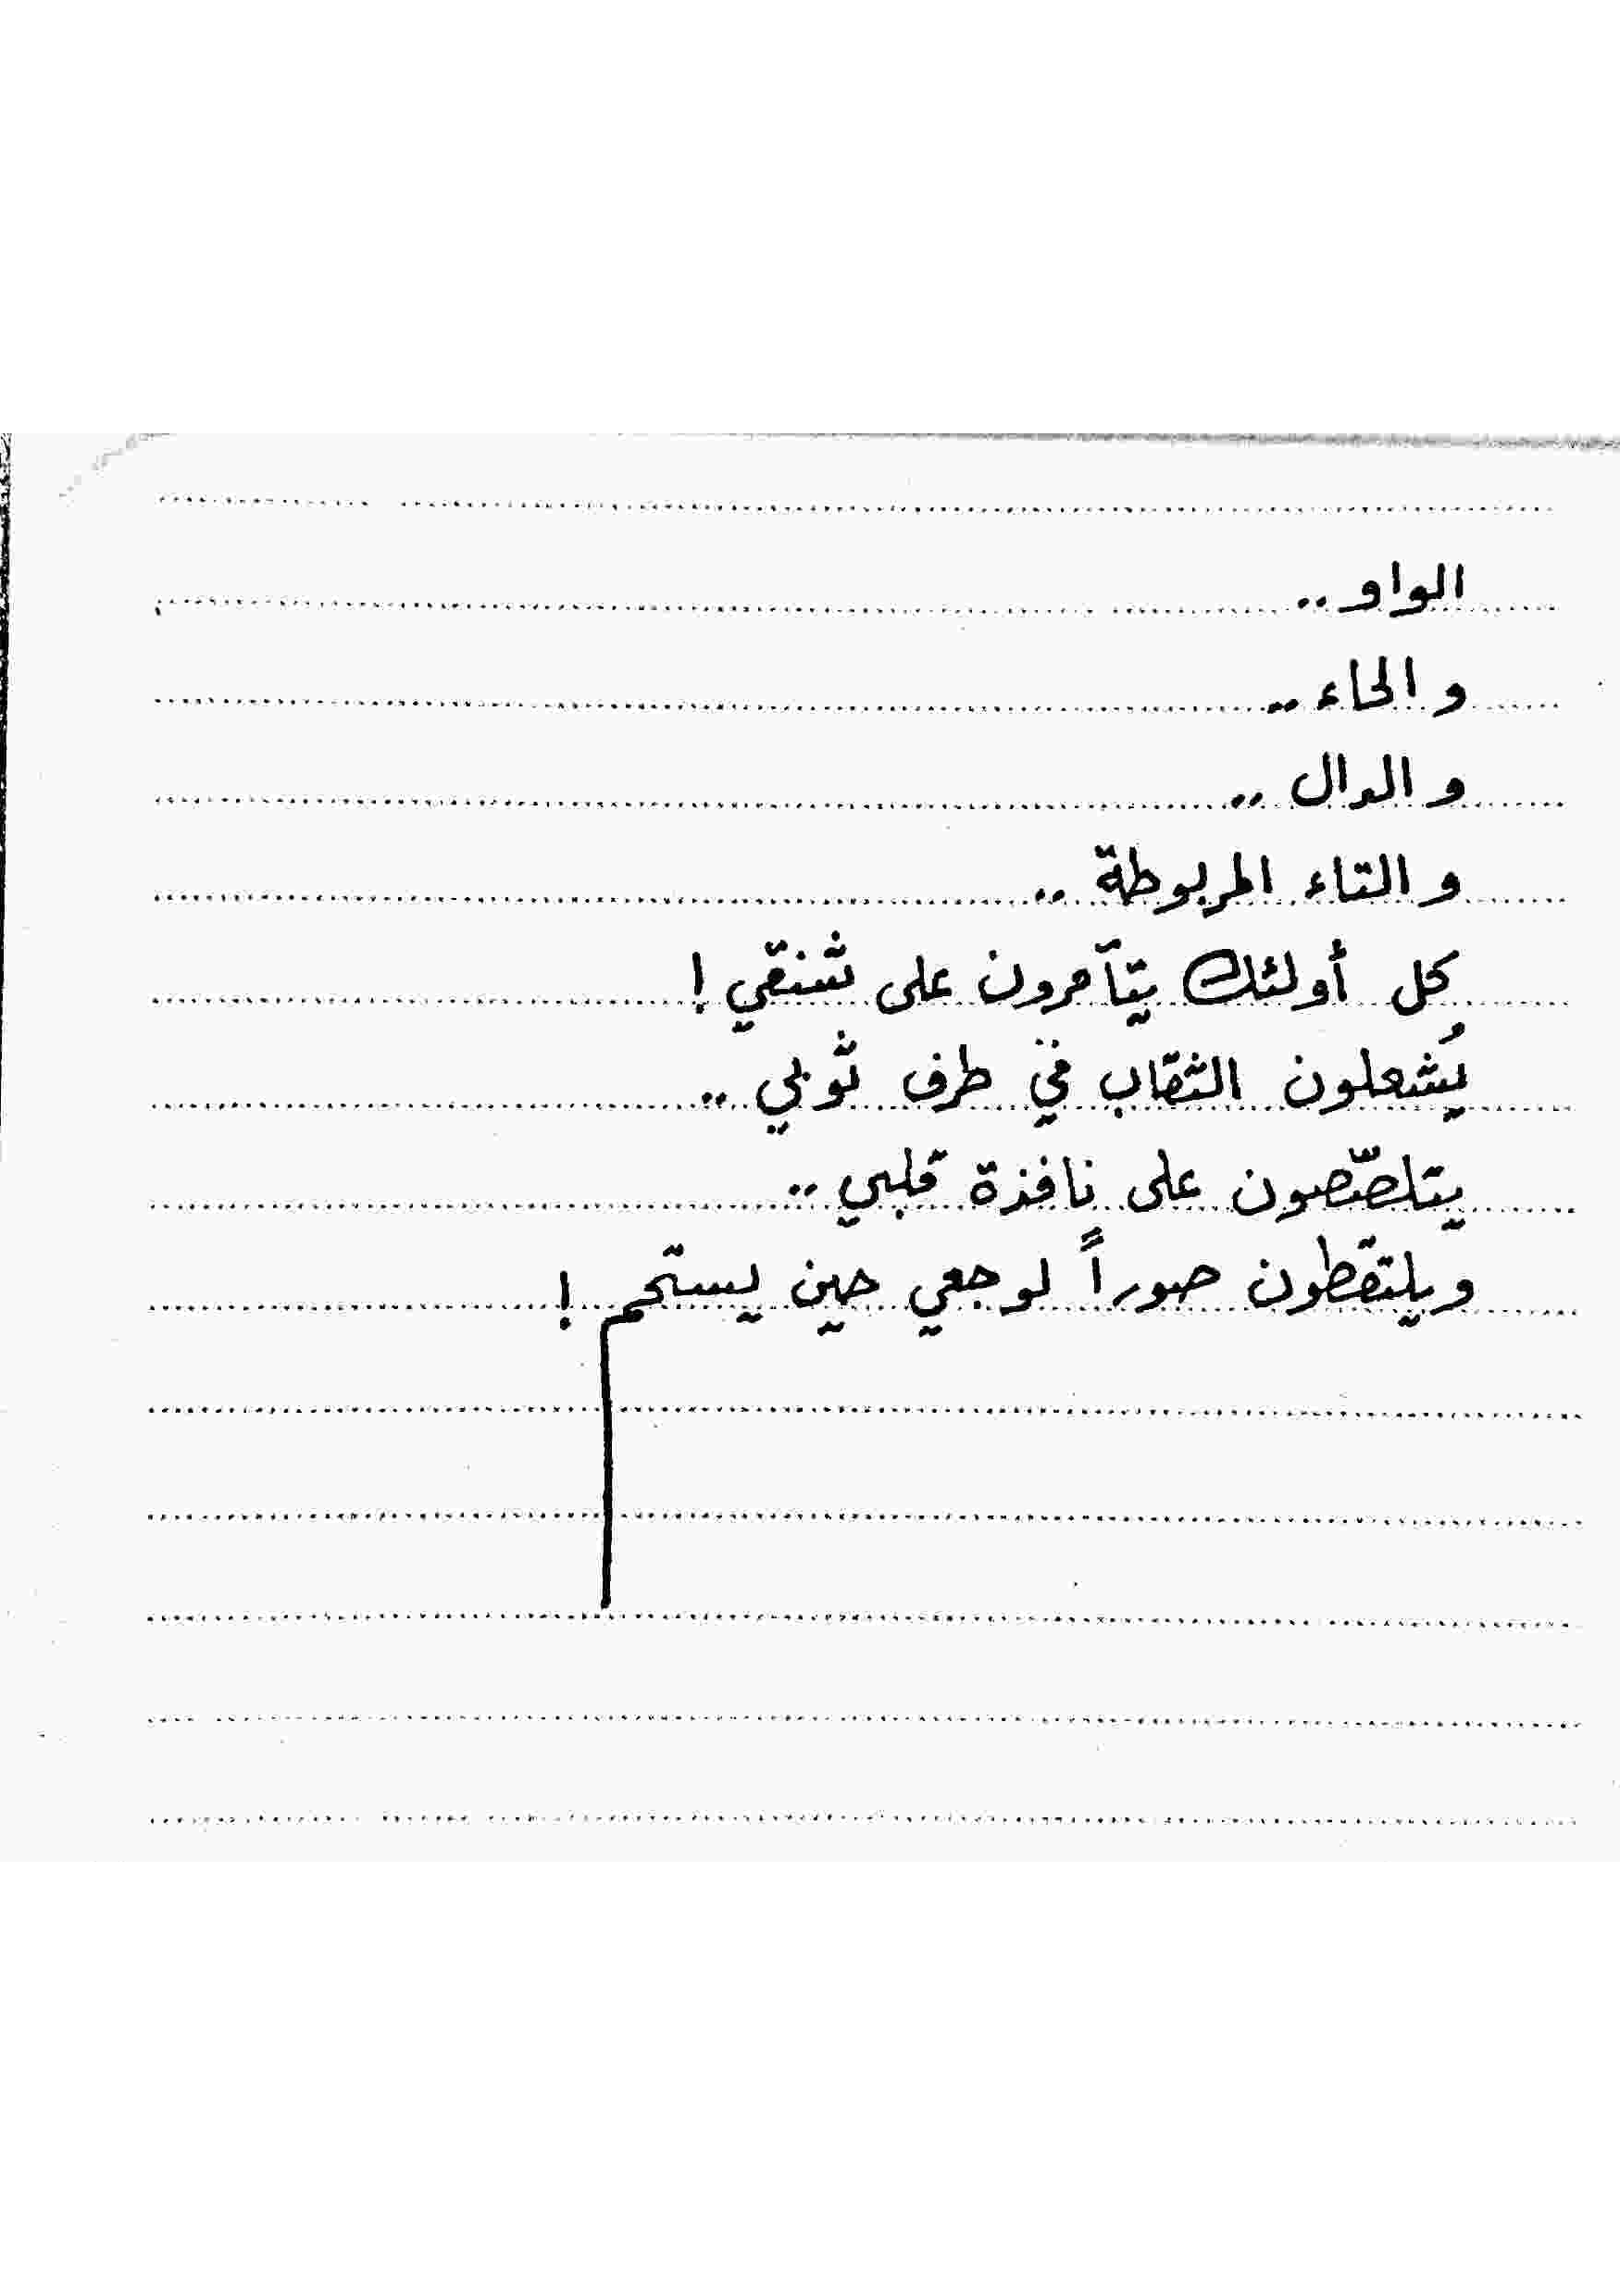 الواو ..
و الحاء ..
و الدال ..
و التاء المربوطة ..
كل أولئك يتآمرون على شنقي !
يُشعلون الثقاب في طرف ثوبي ..
يتلصّصون على نافذة قلبي ..
ويلتقطون صوراً لوجعي حين يستحم !